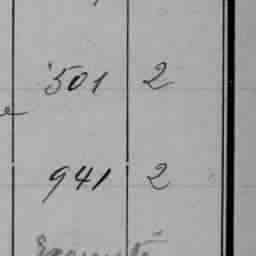 501 2
941 2